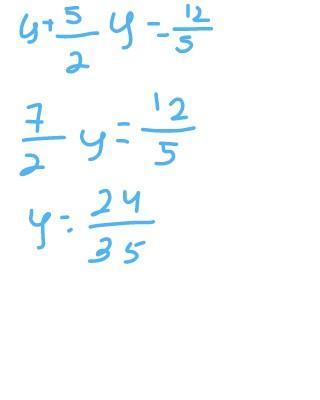 y + 5/2 y = 12/5
7/2 y = 12/5
y = 24/35